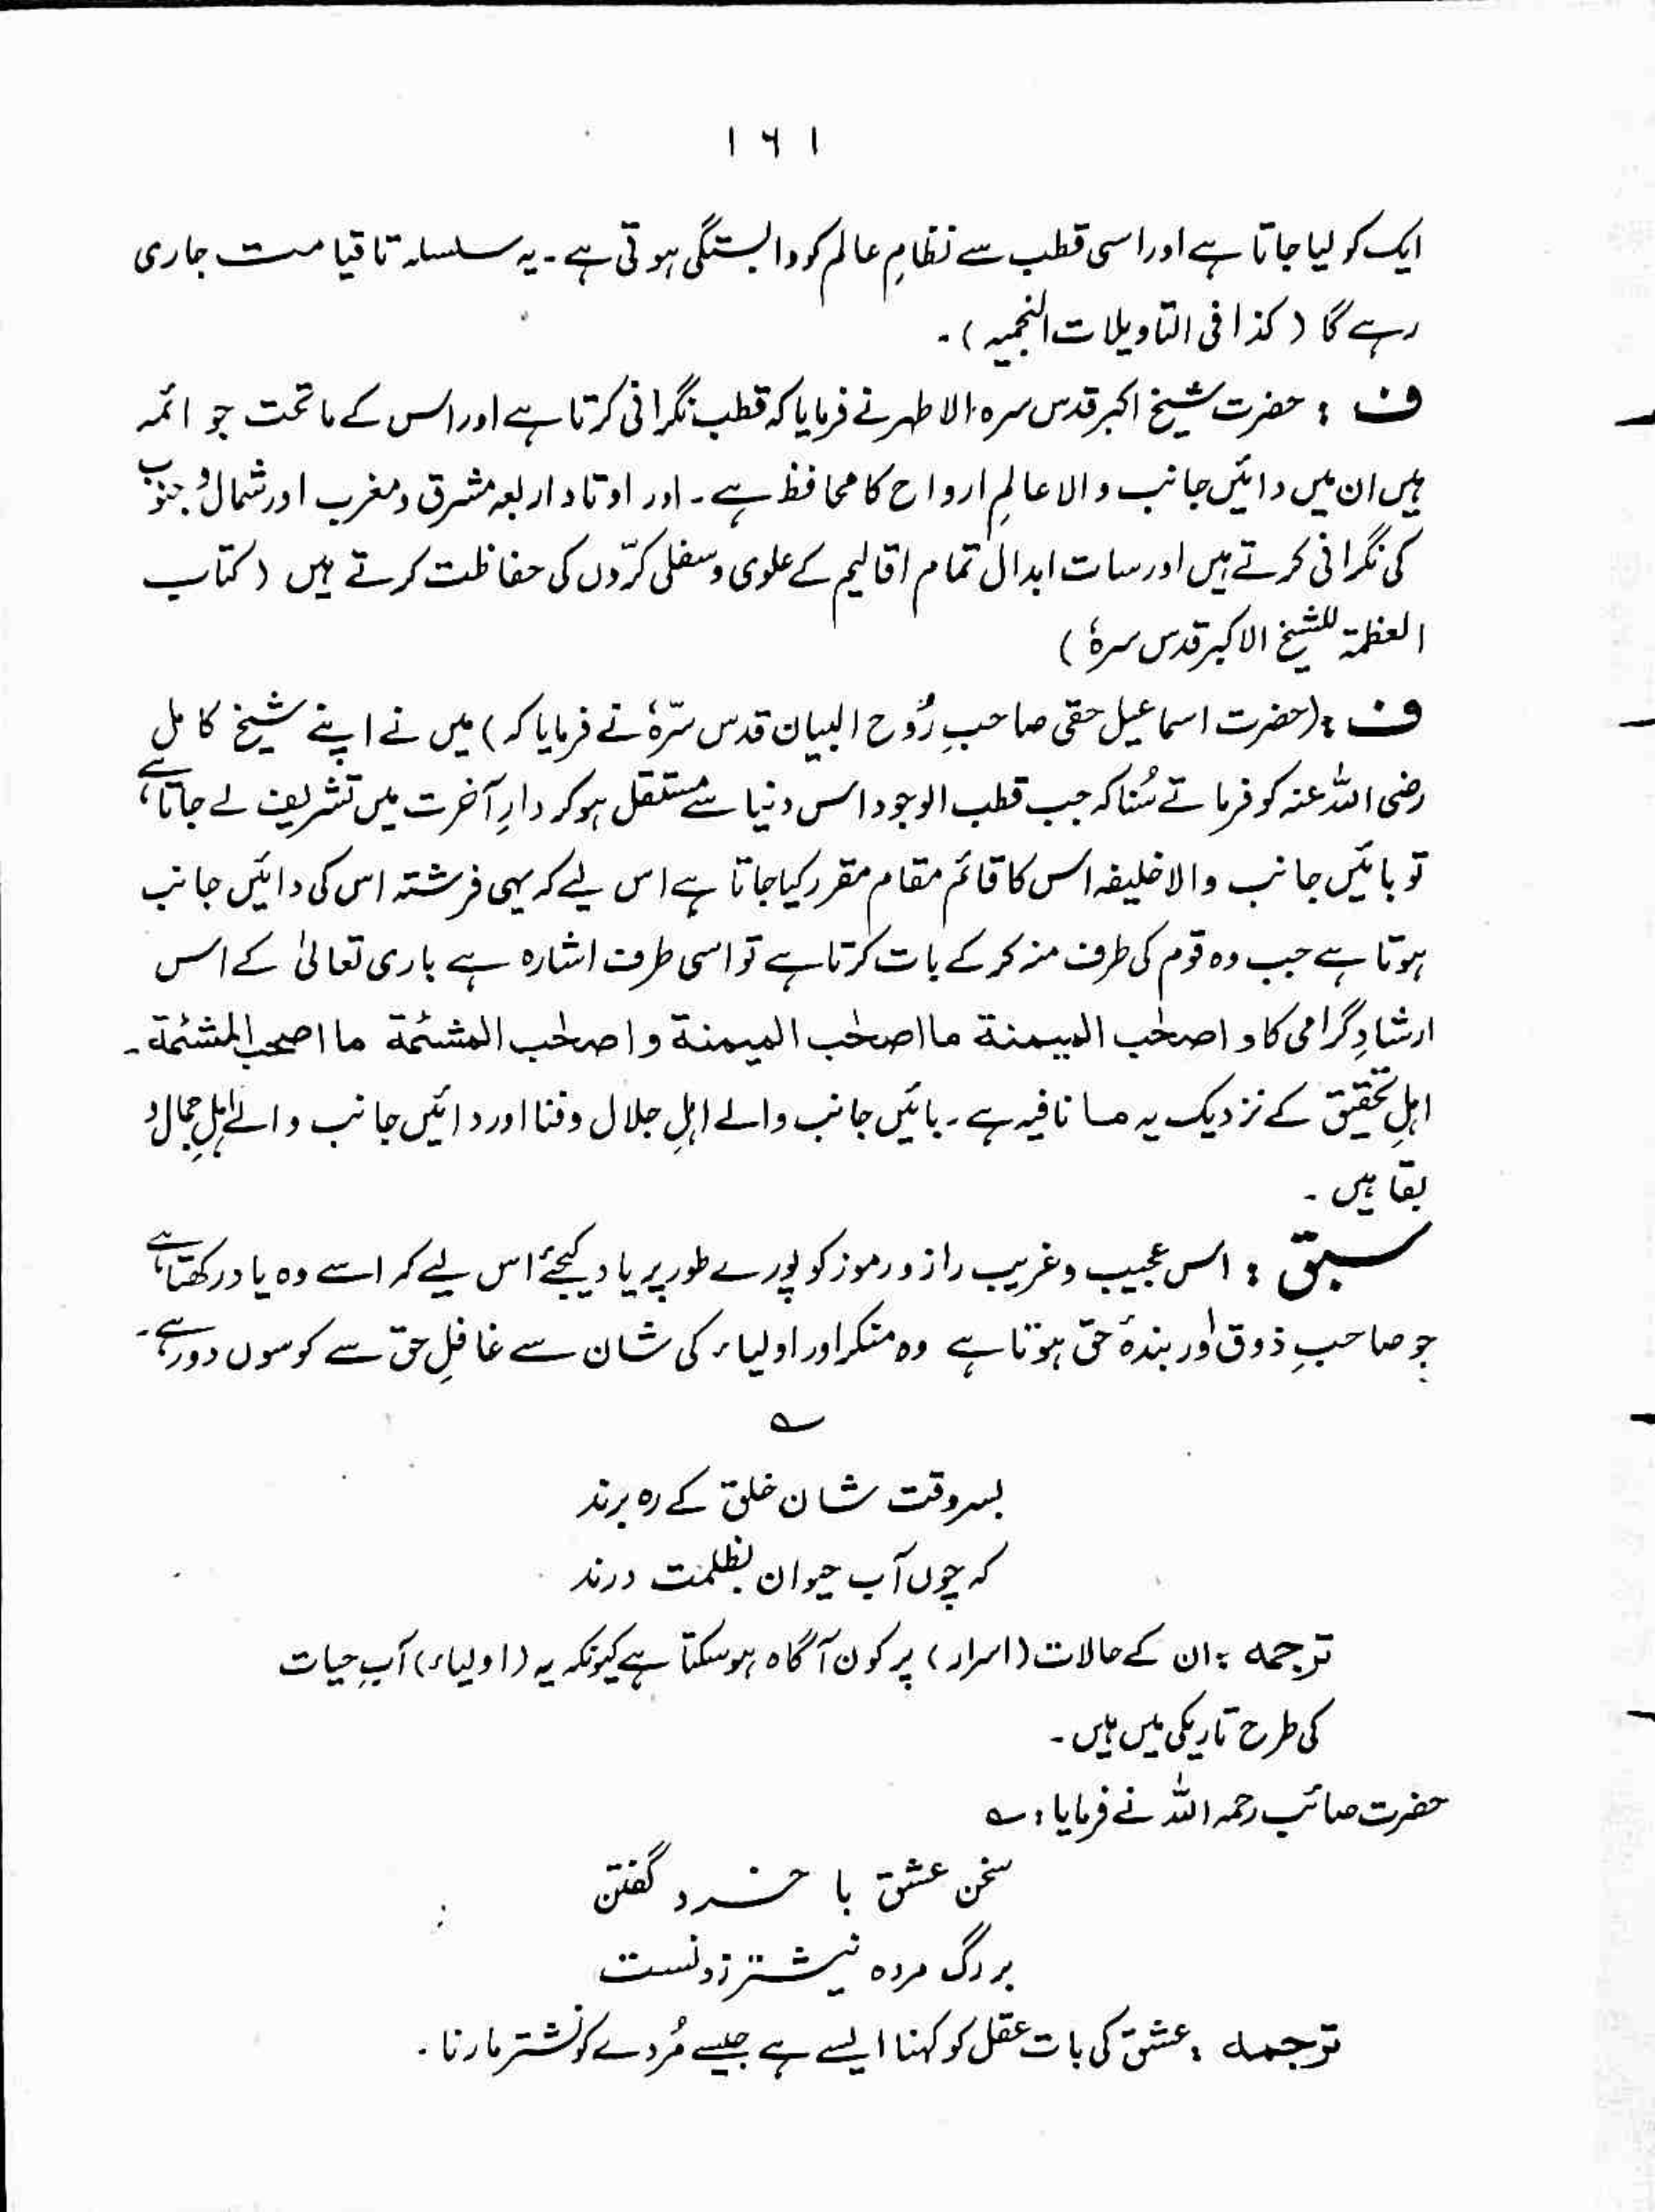 ۱۶۱
ایک کو لیا جاتا ہے اور اسی قطب سے نظامِ عالم کو وابستگی ہوتی ہے۔ یہ سلسلہ تا قیامت جاری
رہے گا (کذا فی التاویلات النجمیہ)۔
ف : حضرت شیخ اکبر قدس سرہ الاطہر نے فرمایا کہ قطب نگرانی کرتا ہے اور اس کے ماتحت جو ائمہ
ہیں ان میں دائیں جانب والا عالمِ ارواح کا محافظ ہے۔ اور اوتاد اربعہ مشرق و مغرب اور شمال و جنوب
کی نگرانی کرتے ہیں اور سات ابدال تمام اقالیم کے علوی و سفلی کرّوں کی حفاظت کرتے ہیں (کتاب
العظمۃ للشیخ الاکبر قدس سرہٗ)
ف : (حضرت اسماعیل حقی صاحبِ رُوح البیان قدس سرّہٗ نے فرمایا کہ) میں نے اپنے شیخ کامل
رضی اللہ عنہ کو فرماتے سُنا کہ جب قطب الوجود اس دنیا سے منتقل ہو کر دارِ آخرت میں تشریف لے جاتا ہے،
تو بائیں جانب والا خلیفہ اس کا قائم مقام مقرر کیا جاتا ہے اس لیے کہ یہی فرشتہ اس کی دائیں جانب
ہوتا ہے جب وہ قوم کی طرف منہ کر کے بات کرتا ہے تو اسی طرف اشارہ ہے باری تعالیٰ کے اس
ارشادِ گرامی کا و اصحٰب المیمنة ما اصحٰب المیمنة و اصحٰب المشئمة ما اصحٰب المشئمة۔
اہلِ تحقیق کے نزدیک یہ ما نافیہ ہے۔ بائیں جانب والے اہلِ جلال و فنا اور دائیں جانب والے اہلِ جمال و
بقا ہیں۔
سبق : اس عجیب و غریب راز و رموز کو پورے طور پر یاد کیجئے اس لیے کہ اسے وہ یاد رکھتا ہے
جو صاحبِ ذوق اور بندۂ حق ہوتا ہے وہ منکر اور اولیاء کی شان سے غافلِ حق سے کوسوں دور ہے۔
؎
بسروقت شان خلق کے رہ برند
کہ چوں آب حیوان بظلمت درند
ترجمہ : ان کے حالات (اسرار) پر کون آگاہ ہو سکتا ہے کیونکہ یہ (اولیاء) آبِ حیات
کی طرح تاریکی میں ہیں۔
حضرت صائب رحمہ اللہ نے فرمایا : ؎
سخن عشق با خرد گفتن
بر رگ مردہ نیشتر زونست
ترجمہ : عشق کی بات عقل کو کہنا ایسے ہے جیسے مُردے کو نشتر مارنا۔